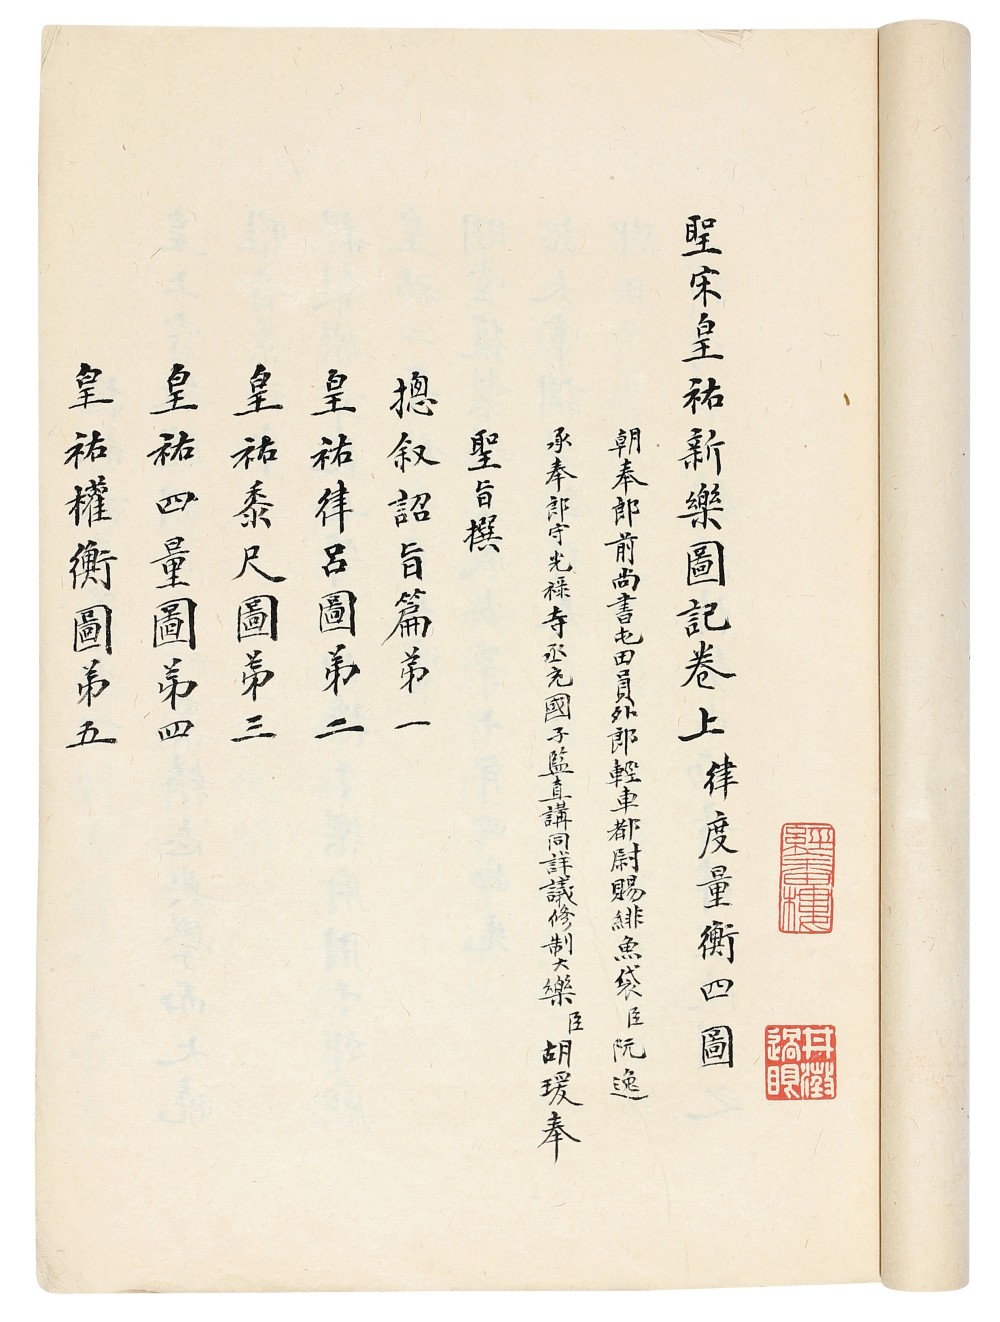 聖宋皇祐新樂圖記卷上 律度量衡四圖
朝奉郎前尚書屯田員外郎輕車都尉賜緋魚袋臣阮逸
承奉郎守光祿寺丞充國子監直講同詳議修制大樂臣胡瑗奉
聖旨撰
摠叙詔旨篇苐一
皇祐律呂圖苐二
皇祐黍尺圖苐三
皇祐四量圖苐四
皇祐權衡圖苐五
經香樓
井澂過眼